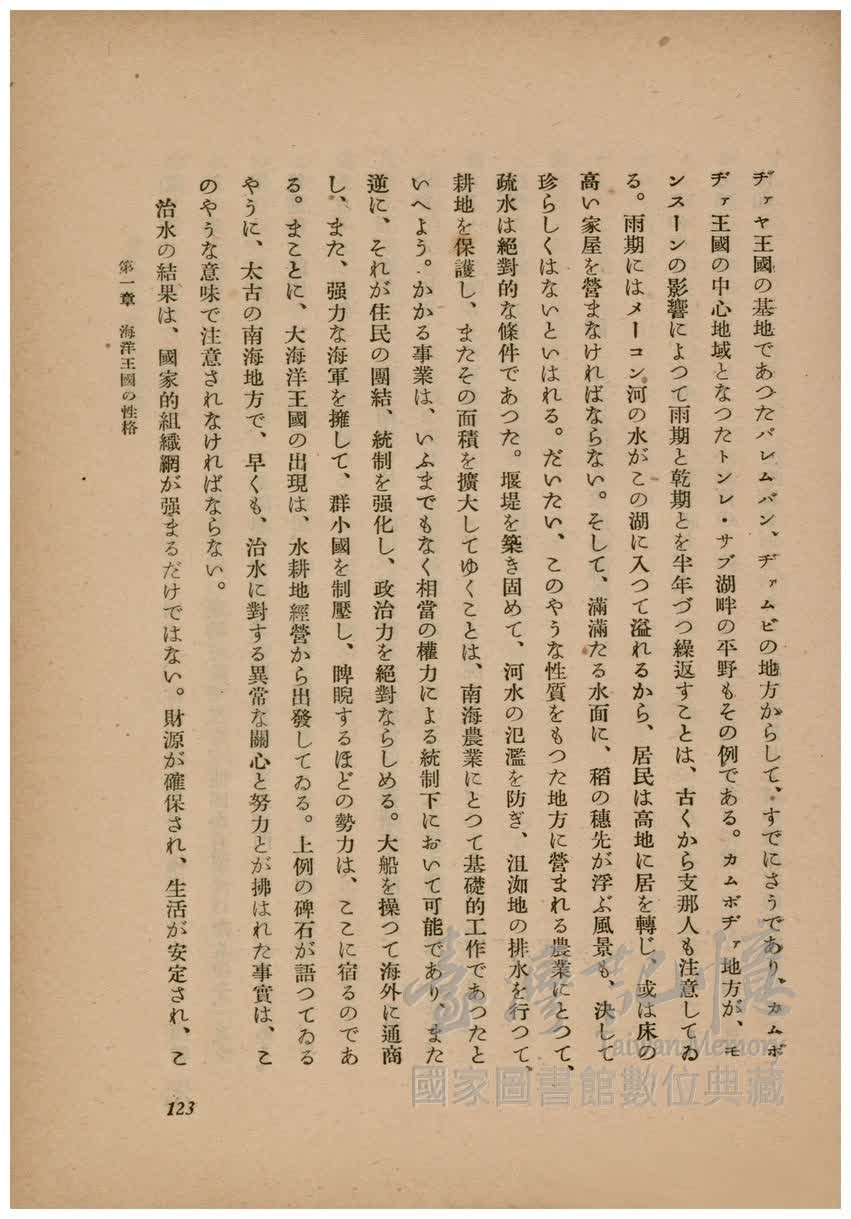 ヂァヤ王國の基地であつたパレムバン、ヂァムビの地方からして、すでにさうであり、カムボ
ヂァ王國の中心地域となつたトンレ・サブ湖畔の平野もその例である。カムボヂァ地方が、モ
ンスーンの影響によつて雨期と乾期とを半年づつ繰返すことは、古くから支那人も注意してゐ
る。雨期にはメーコン河の水がこの湖に入つて溢れるから、居民は高地に居を轉じ、或は床の
高い家屋を營まなければならない。そして、滿滿たる水面に、稻の穗先が浮ぶ風景も、決して
珍らしくはないといはれる。だいたい、このやうな性質をもつた地方に營まれる農業にとつて、
疏水は絕對的な條件であつた。堰堤を築き固めて、河水の氾濫を防ぎ、沮洳地の排水を行つて、
耕地を保護し、またその面積を擴大してゆくことは、南海農業にとつて基礎的工作であつたと
いへよう。かかる事業は、いふまでもなく相當の權力による統制下において可能であり、また
逆に、それが住民の團結、統制を强化し、政治力を絕對ならしめる。大船を操つて海外に通商
し、また、强力な海軍を擁して、群小國を制壓し、睥睨するほどの勢力は、ここに宿るのであ
る。まことに、大海洋王國の出現は、水耕地經營から出發してゐる。上例の碑石が語つてゐる
やうに、太古の南海地方で、早くも、治水に對する異常な關心と努力とが拂はれた事實は、こ
のやうな意味で注意されなければならない。
治水の結果は、國家的組織網が强まるだけではない。財源が確保され、生活が安定され、こ
第一章 海洋王國の性格
123
臺灣記憶
Taiwan Memory
國家圖書館數位典藏